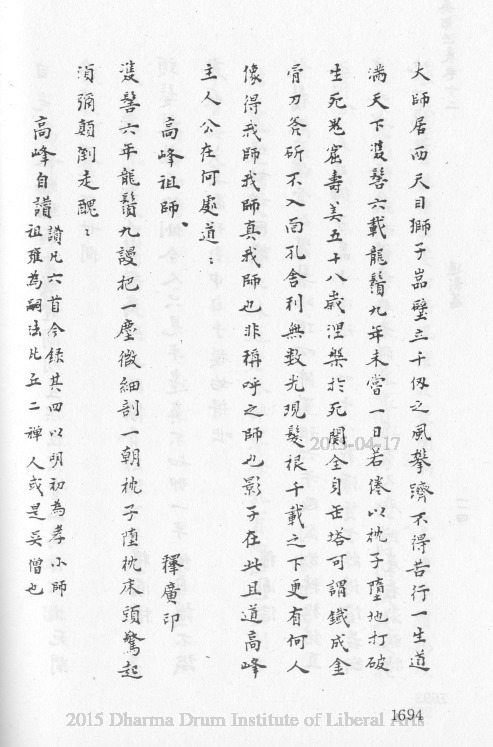 大師居西天目獅子嵓壁立千仭之風攀躋不得苦行一生道
滿天下雙髻六載龍鬚九年未嘗一日若倦以枕子墮地打破
生死鬼窟壽美五十八歲涅槃於死關全身缶塔可謂鐵成金
骨刀斧斫不入面孔舍利無数光現髮根千載之下更有何人
像得我師我師真我師也非稱呼之師也影子在此且道高峰
主人公在何處道
高峰祖師
釋廣印
雙髻六年龍鬚九謾把一塵微細剖一朝枕子墮枕床頭驚起
須彌顛倒走醜
高峰自讃
讃凡六首今録其四以明初為孝小師
祖雍為嗣法比丘二禪人或是吴僧也
2013-04-17
1694
2015 Dharma Drum Institute of Liberal Arts